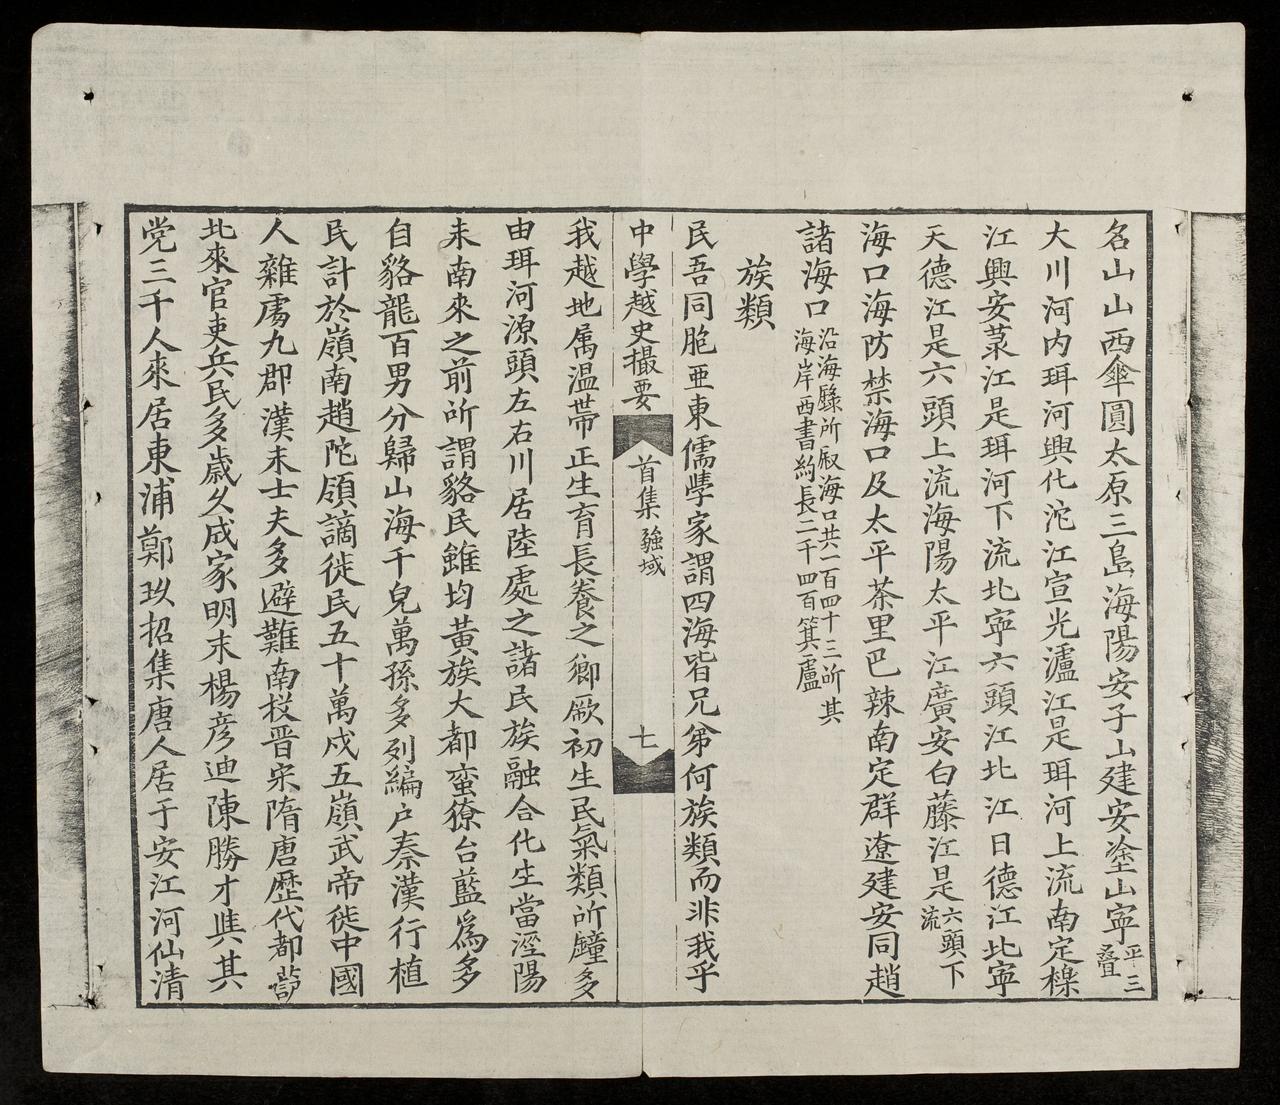 名山山西傘圓太原三島海陽安子山建安塗山寧平三疊
大川河內珥河興化沱江宣光瀘江是珥河上流南定樑
江興安菉江是珥河下流北寧六頭江北江日德江北寧
天德江是六頭上流海陽太平江廣安白藤江是六頭下流
海口海防禁海口及太平茶里巴辣南定群遼建安同趙
諸海口沿海縣所叚海口共一百四十三所其海岸西書約長二千四百箕盧
族類
民吾同胞亜東儒學家謂四海皆兄弟何族類而非我乎
中學越史撮要 首集 疆域 七
我越地属温带正生育長養之鄉厥初生民氣類所鍾多
由珥河源頭左右川居陸處之諸民族融合化生當涇陽
未南來之前所謂貉民雖均黄族大都蛮獠台藍爲多
自貉龍百男分歸山海千兒萬孫多列編户秦漢行植
民計於嶺南趙陀領謫徙民五十萬戍五嶺武帝徙中國
人雜處九郡漢末士夫多避難南校晋宋隋唐歷代都護
北來官吏兵民多歲久成家明末楊彦迪陳勝才與其
党三千人來居東浦鄭玖招集唐人居于安江河仙清